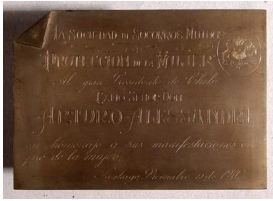 LA SOCIEDAD DE SOCORROS MUTUOS
PROTECCION DE LA MUJER
Al gran Presidente de Chile
EXMO. SEÑOR DON
ARTURO ALESSANDRI
en homenaje a sus manifestaciones en
pro de la mujer.
Santiago,